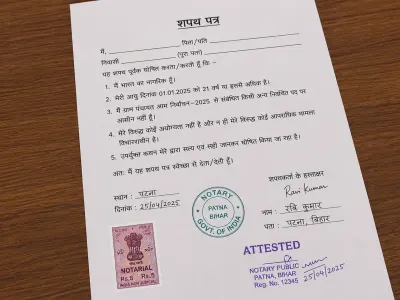 शपथ पत्र
मैं, ____________________ पिता/पति ____________________
निवासी ____________________ (पूरा पता) ____________________
यह शपथ पूर्वक घोषित करता/करती हूँ कि :-
1. मैं भारत का नागरिक हूँ।
2. मेरी आयु दिनांक 01.01.2025 को 21 वर्ष या इससे अधिक है।
3. मैं ग्राम पंचायत आम निर्वाचन-2025 से संबंधित किसी अन्य निर्वाचित पद पर
आसीन नहीं हूँ।
4. मेरे विरुद्ध कोई अयोग्यता नहीं है और न ही मेरे विरुद्ध कोई आपराधिक मामला
विचाराधीन है।
5. उपर्युक्त कथन मेरे द्वारा सत्य एवं सही जानकर घोषित किया जा रहा है।
अतः मैं यह शपथ पत्र स्वेच्छा से देता/देती हूँ।
शपथकर्ता के हस्ताक्षर
Ravi Kumar
स्थान : पटना
दिनांक : 25/04/2025
नाम : रबि कुमार
पता : पटना, बिहार
NOTARY
PATNA
BIHAR
GOVT. OF INDIA
NOTARIAL
Rs.5 Rs.5
INDIA NON JUDICIAL
ATTESTED
NOTARY PUBLIC
PATNA, BIHAR
Reg. No. 12345
25/04/2025